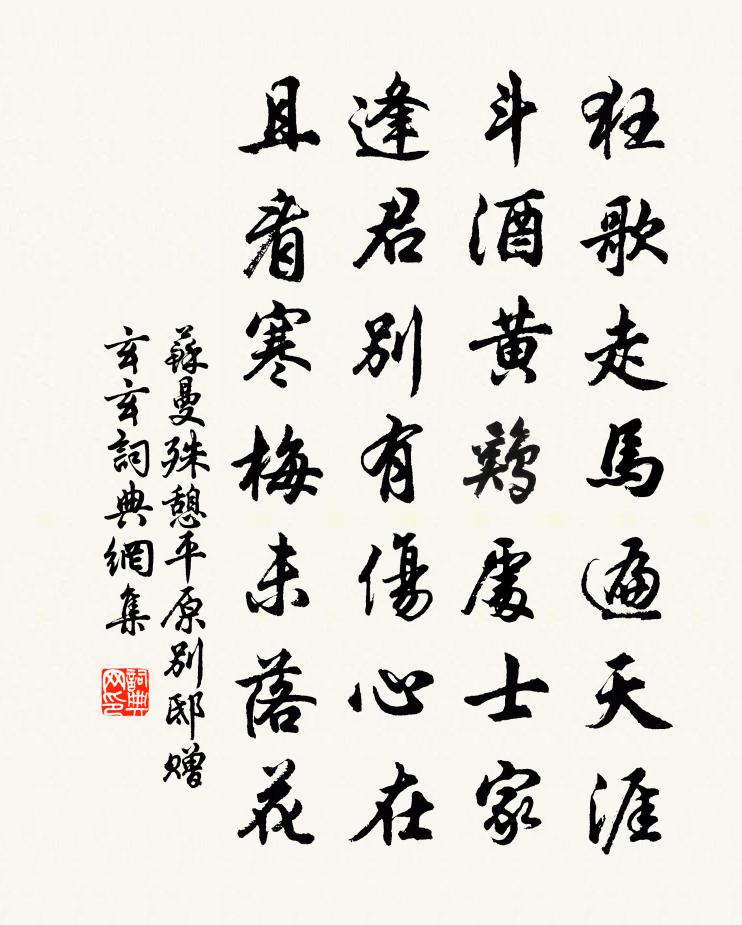 狂歌走馬遍天涯
斗酒黄鷄處士家
逢君别有傷心在
且看寒梅未落花
蘇曼殊憩平原别邸赠
玄玄詞典網集
詞典网印